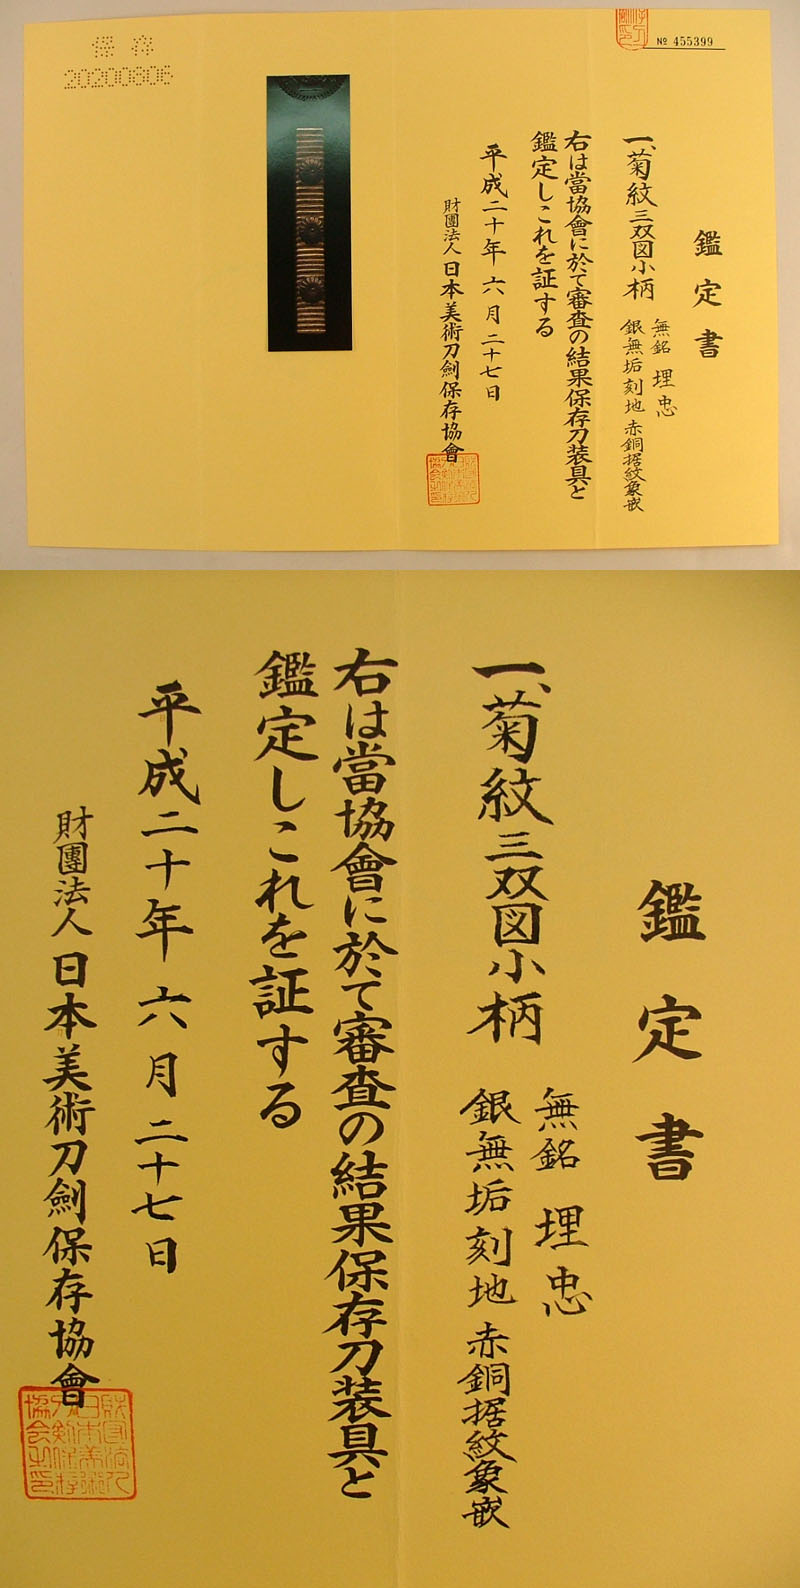 保存
20200606
№ 455399
鑑定書
一、菊紋三双図小柄
無銘 埋忠
銀無垢刻地 赤銅据紋象嵌
右は當協會に於て審査の結果保存刀装具と
鑑定しこれを証する
平成二十年六月二十七日
財團法人日本美術刀劍保存協會
鑑定書
一、菊紋三双図小柄
無銘 埋忠
銀無垢刻地 赤銅据紋象嵌
右は當協會に於て審査の結果保存刀装具と
鑑定しこれを証する
平成二十年六月二十七日
財團法人日本美術刀劍保存協會